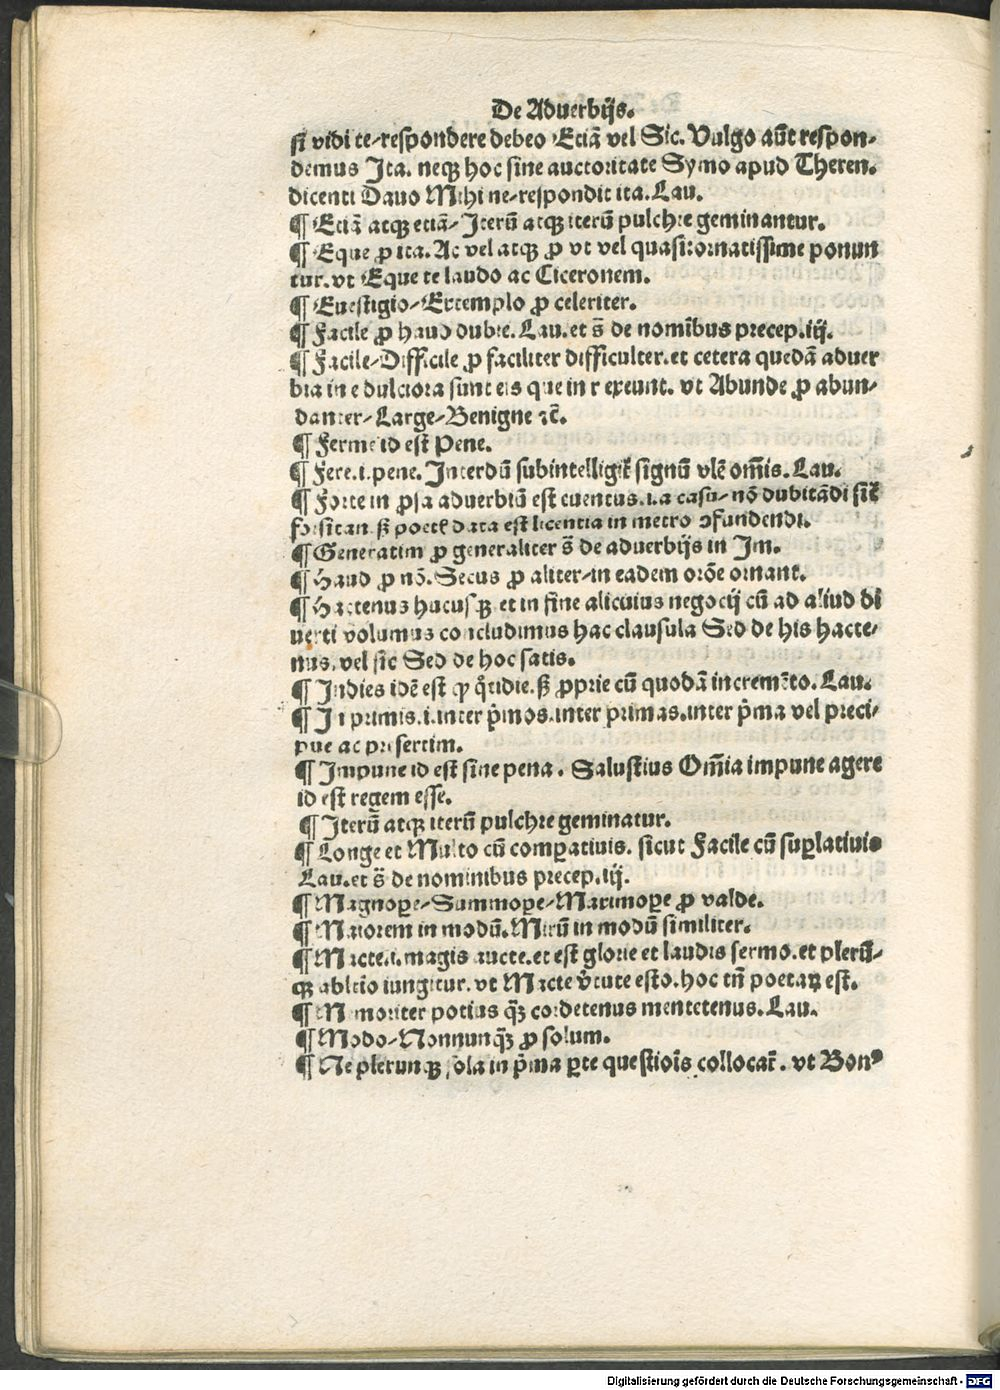 De Aduerbijs.
si vidi te-respondere debeo Etiā vel Sic. Vulgo aūt respon-
demus Ita. neqꝫ hoc sine auctoritate Symo apud Theren.
dicenti Dauo Mihi ne-respondit ita. Lau.
¶ Etiā atqꝫ etiā-Iterū atqꝫ iterū pulchre geminantur.
¶ Eque ꝓ ita. Ac vel atqꝫ ꝓ vt vel quasi:ornatissime ponun
tur. vt Eque te laudo ac Ciceronem.
¶ Euestigio-Extemplo ꝓ celeriter.
¶ Facile ꝓ haud dubie. Lau. et s̄ de nomībus precep. iij.
¶ Facile-Difficile ꝓ faciliter difficulter. et cetera quedā aduer
bia in e dulciora sunt eis que in r exeunt. vt Abunde ꝓ abun-
danter-Large-Benigne ⁊c̄.
¶ Ferme id est Pene.
¶ Fere .i. pene. Interdū subintelligit̄ signū vl̄e om̄is. Lau.
¶ Forte in ꝓsa aduerbiū est euentus .i. a casu-nō dubitādi sic̄
forsitan. sꝫ poet̄ data est licentia in metro ꝯfundendi.
¶ Generatim ꝓ generaliter s̄ de aduerbijs in Im.
¶ Haud ꝓ nō. Secus ꝓ aliter-in eadem orōe ornant.
¶ Hactenus hucusqꝫ et in fine alicuius negocij cū ad aliud di
uerti volumus concludimus hac clausula Sed de his hacte-
nus. vel sic Sed de hoc satis.
¶ Indies idē est qꝫ q̊tidie. sꝫ ꝓprie cū quodā incremēto. Lau.
¶ In primis .i. inter p̄mos. inter primas. inter p̄ma vel preci-
pue ac presertim.
¶ Impune id est sine pena. Salustius Om̄ia impune agere
id est regem esse.
¶ Iterū atqꝫ iterū pulchre geminatur.
¶ Longe et Multo cū comꝑatiuis. sicut Facile cū suꝑlatiuis
Lau. et s̄ de nominibus precep. iij.
¶ Magnoꝑe-Summoꝑe-Maximoꝑe ꝓ valde.
¶ Maiorem in modū. Mirū in modū similiter.
¶ Macte .i. magis aucte. et est glorie et laudis sermo. et plerū-
qꝫ abltio iungitur. vt Macte v̄tute esto. hoc tn̄ poetaꝝ est.
¶ Memoriter potius qꝫ̄ cordetenus mentetenus. Lau.
¶ Modo-Nonnunqꝫ̄ ꝓ solum.
¶ Ne plerunqꝫ sola in p̄ma ꝑte questiōis collocat̄. vt Bonꝰ
Digitalisierung gefördert durch die Deutsche Forschungsgemeinschaft - DFG